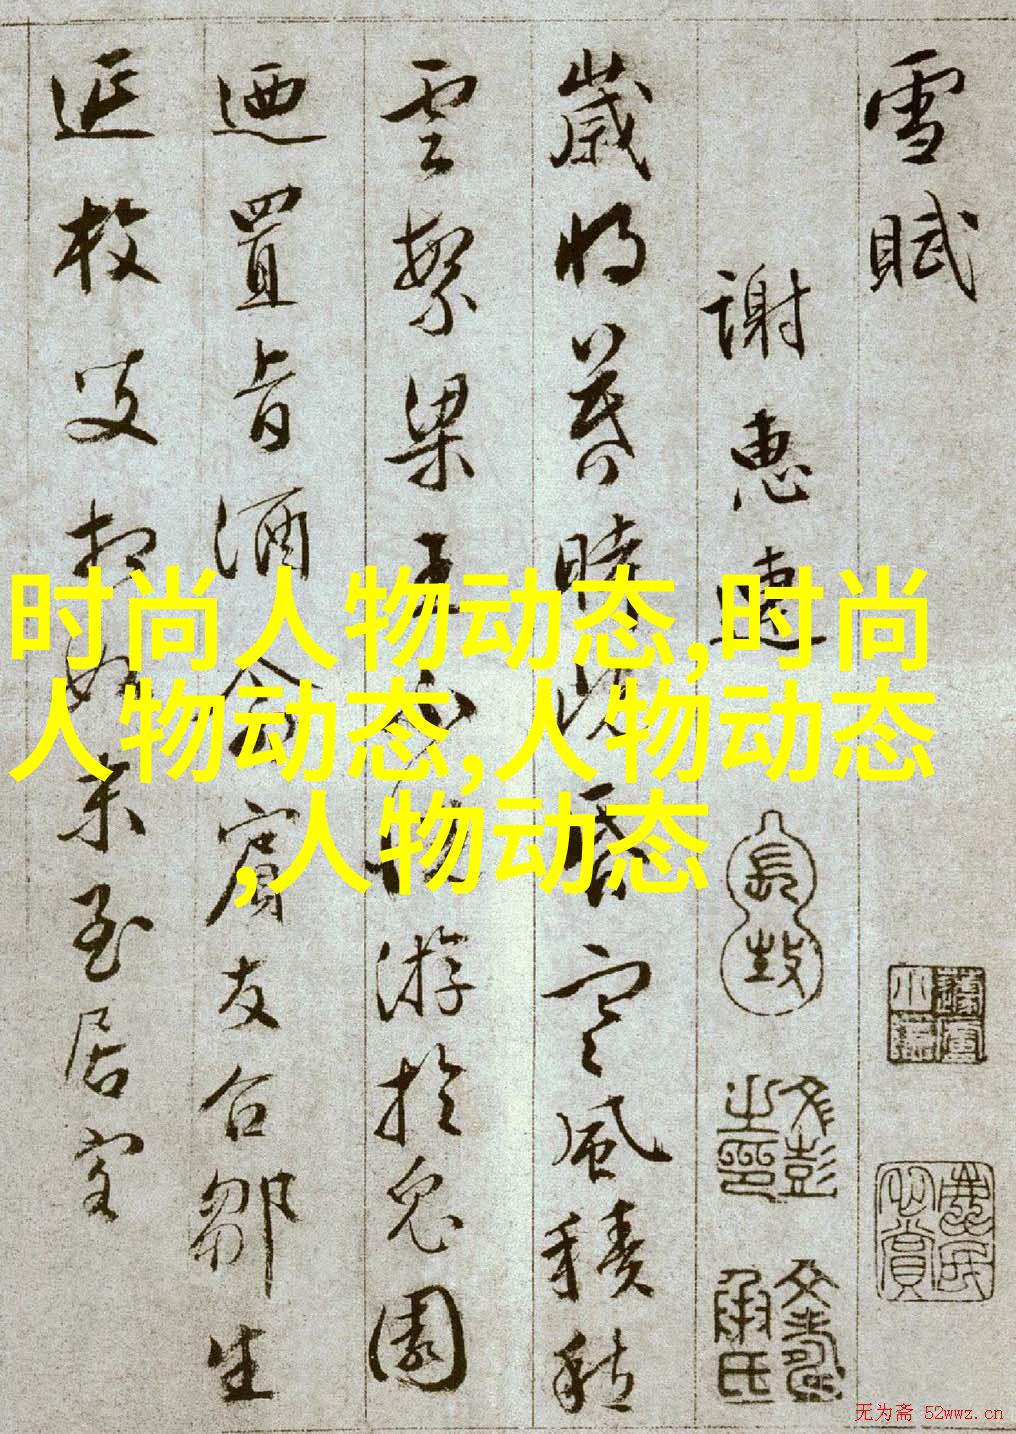 雪賦
謝惠連
歲将暮時既昏寒風積愁
雲繁梁王不悅游於兔園
迺置旨酒命賓友召鄒生
延枚叟相如末至居客
时尚人物动态,时尚
人物动态,人物动态
,人物动态
文彭之印
文壽承氏
无为斋 52wwz.cn